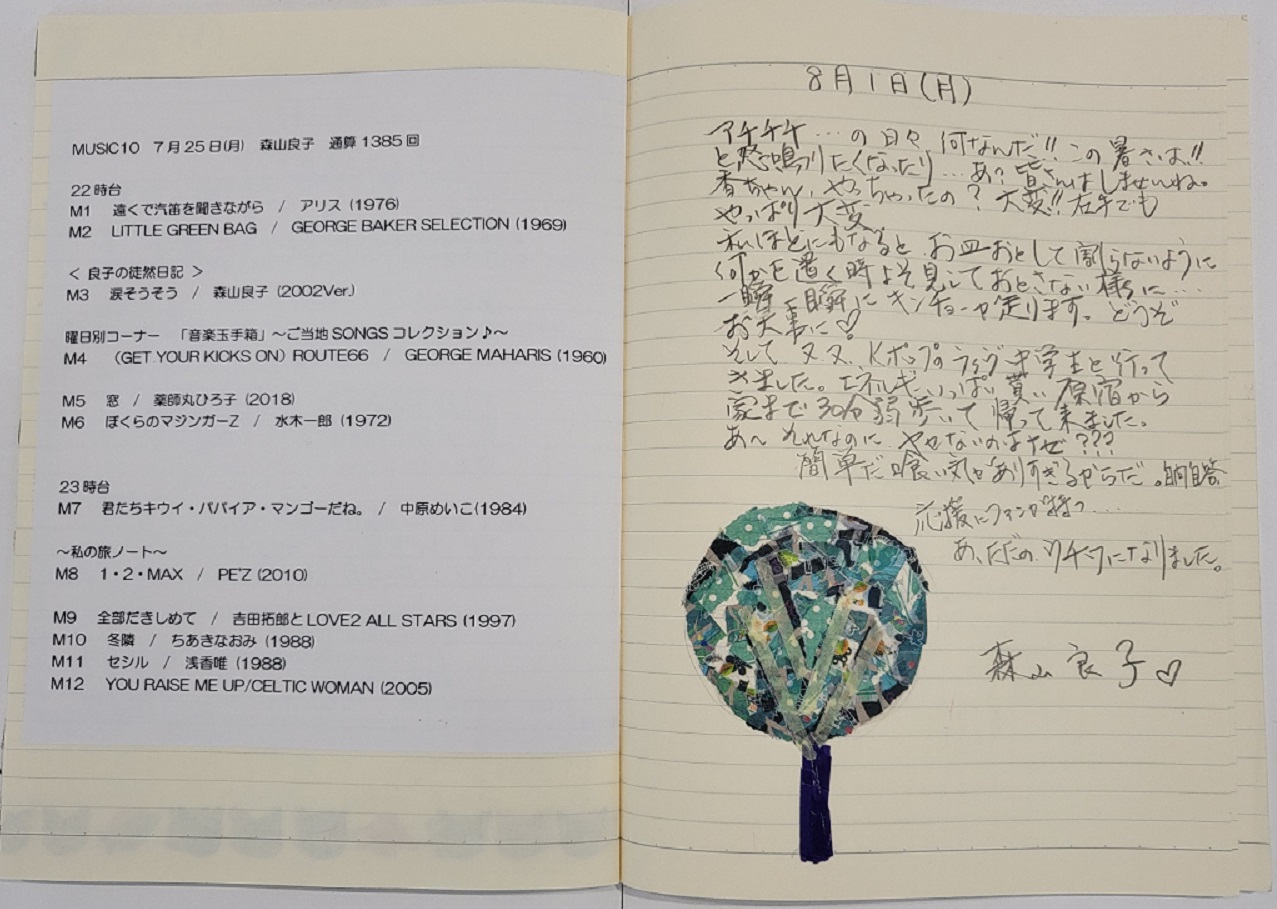 MUSIC10 7月25日(月) 森山良子 通算1385回
22時台
M1 遠くで汽笛を聞きながら / アリス (1976)
M2 LITTLE GREEN BAG / GEORGE BAKER SELECTION (1969)
< 良子の徒然日記 >
M3 涙そうそう / 森山良子 (2002Ver.)
曜日別コーナー 「音楽玉手箱」～ご当地SONGSコレクション♪～
M4 (GET YOUR KICKS ON) ROUTE66 / GEORGE MAHARIS (1960)
M5 窓 / 薬師丸ひろ子 (2018)
M6 ぼくらのマジンガーZ / 水木一郎 (1972)
23時台
M7 君たちキウイ・パパイア・マンゴーだね。 / 中原めいこ(1984)
～私の旅ノート～
M8 1・2・MAX / PE'Z (2010)
M9 全部だきしめて / 吉田拓郎とLOVE2 ALL STARS (1997)
M10 冬隣 / ちあきなおみ (1988)
M11 セシル / 浅香唯 (1988)
M12 YOU RAISE ME UP/CELTIC WOMAN (2005)
8月1日(月)
アチチチ…の日々、何なんだ!!この暑さは!!
と怒鳴りたくなったり…あ?皆さんはしませんね。
香ちゃん、やっちゃったの?大変!!左手でも
やっぱり大変
私ほどにもなるとお皿おとして割らないように
何かを置く時よそ見しておとさない様に…
一瞬一瞬にキンチョーが走ります。どうぞ
お大事に♡
そして又々、Kポップのライブ中学生と行って
きました。エネルギーいっぱい貰い原宿から
家まで30分弱歩いて帰って来ました。
あ～それなのにやせないのはなぜ???
簡単だ喰い気がありすぎるからだ。自問自答
応援にファンが持つ……
あ、ただのウチワになりました。
森山良子♡